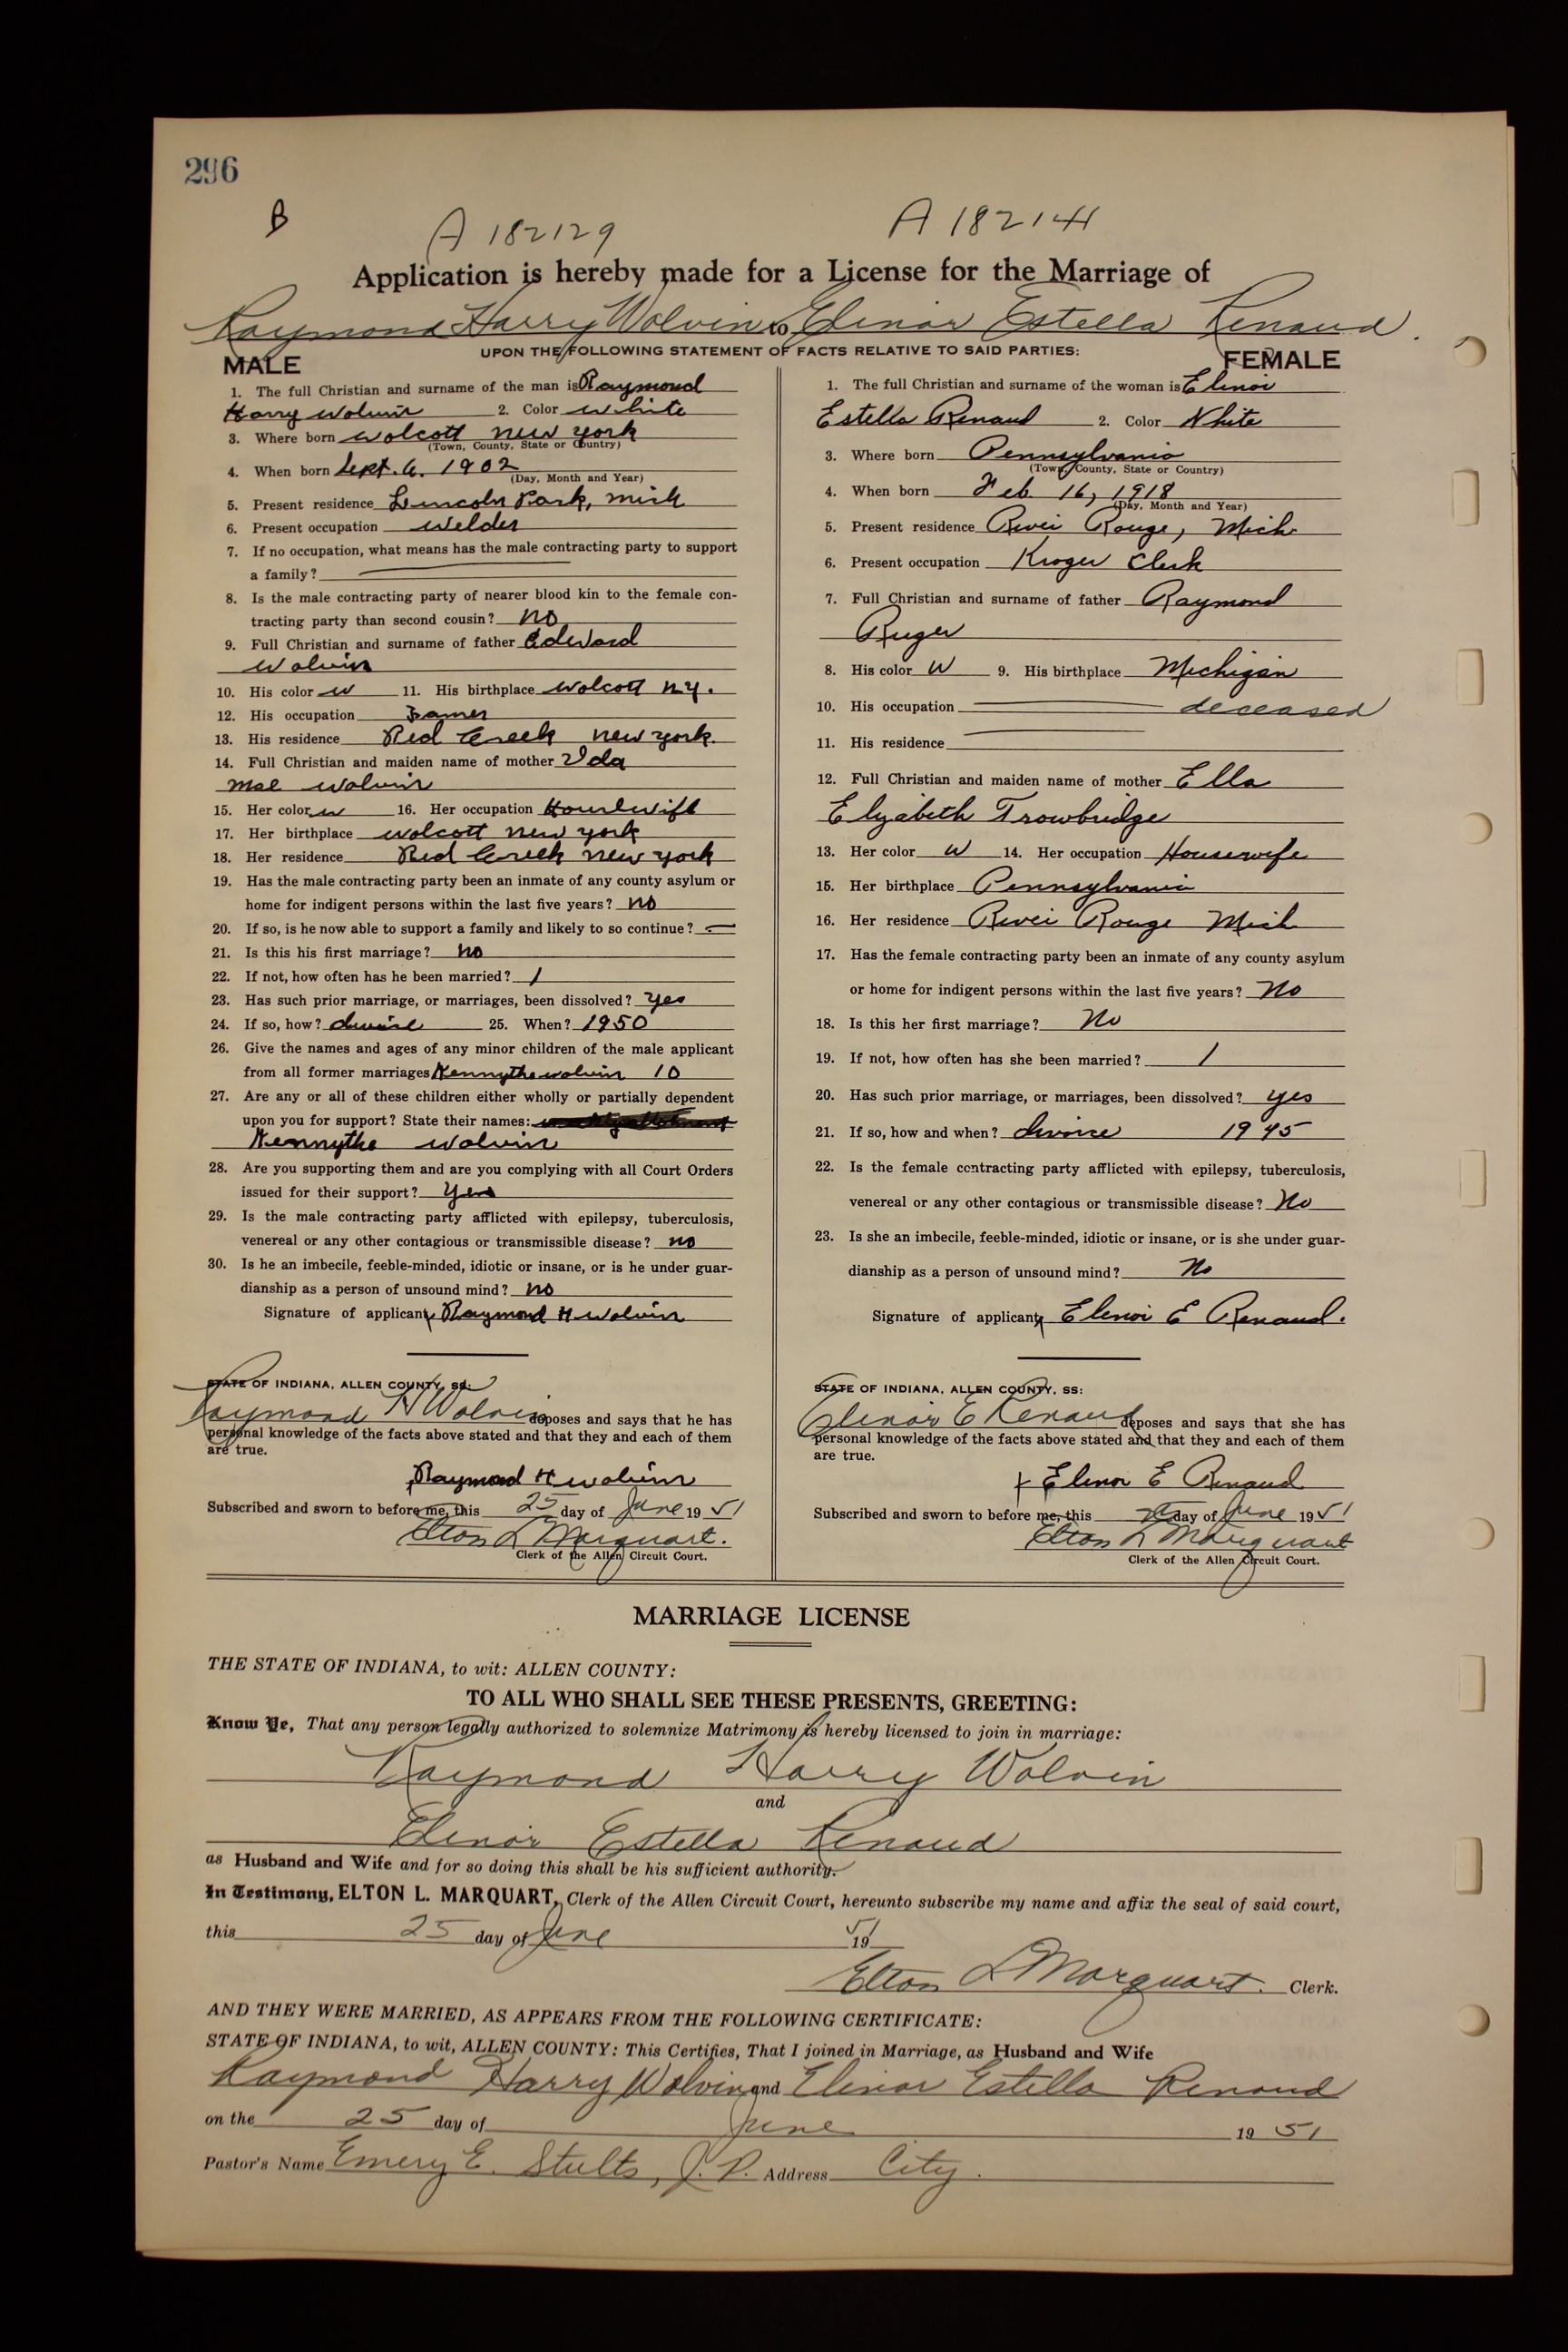 296
B
A 182129
A 182141
Application is hereby made for a License for the Marriage of
Raymond Harry Wolvin to Elinor Estella Renaud.
UPON THE FOLLOWING STATEMENT OF FACTS RELATIVE TO SAID PARTIES:
MALE
1. The full Christian and surname of the man is Raymond
Harry Wolvin 2. Color White
3. Where born Wolcott New York
(Town, County, State or Country)
4. When born Sept. 6. 1902
(Day, Month and Year)
5. Present residence Lincoln Park, Mich
6. Present occupation Welder
7. If no occupation, what means has the male contracting party to support
a family?
8. Is the male contracting party of nearer blood kin to the female con-
tracting party than second cousin? No
9. Full Christian and surname of father Edward
Wolvin
10. His color W 11. His birthplace Wolcott N.Y.
12. His occupation Farmer
13. His residence Red Creek New York.
14. Full Christian and maiden name of mother Ida
Mae Wolvin
15. Her color W 16. Her occupation Housewife
17. Her birthplace Wolcott New York
18. Her residence Red Creek New York
19. Has the male contracting party been an inmate of any county asylum or
home for indigent persons within the last five years? No
20. If so, is he now able to support a family and likely to so continue? —
21. Is this his first marriage? No
22. If not, how often has he been married? 1
23. Has such prior marriage, or marriages, been dissolved? Yes
24. If so, how? divorce 25. When? 1950
26. Give the names and ages of any minor children of the male applicant
from all former marriages Kennythe Wolvin 10
27. Are any or all of these children either wholly or partially dependent
upon you for support? State their names:
Kennythe Wolvin
28. Are you supporting them and are you complying with all Court Orders
issued for their support? Yes
29. Is the male contracting party afflicted with epilepsy, tuberculosis,
venereal or any other contagious or transmissible disease? No
30. Is he an imbecile, feeble-minded, idiotic or insane, or is he under guar-
dianship as a person of unsound mind? No
Signature of applicant Raymond H Wolvin
STATE OF INDIANA, ALLEN COUNTY, SS:
Raymond H Wolvin deposes and says that he has
personal knowledge of the facts above stated and that they and each of them
are true.
Raymond H Wolvin
Subscribed and sworn to before me, this 25 day of June 19 51
Elton L Marquart.
Clerk of the Allen Circuit Court.
FEMALE
1. The full Christian and surname of the woman is Elenor
Estella Renaud 2. Color White
3. Where born Pennsylvania
(Town, County, State or Country)
4. When born Feb 16, 1918
(Day, Month and Year)
5. Present residence River Rouge, Mich
6. Present occupation Kroger Clerk
7. Full Christian and surname of father Raymond
Ruger
8. His color W 9. His birthplace Michigan
10. His occupation deceased
11. His residence
12. Full Christian and maiden name of mother Ella
Elyabeth Trowbridge
13. Her color W 14. Her occupation Housewife
15. Her birthplace Pennsylvania
16. Her residence River Rouge Mich
17. Has the female contracting party been an inmate of any county asylum
or home for indigent persons within the last five years? No
18. Is this her first marriage? No
19. If not, how often has she been married? 1
20. Has such prior marriage, or marriages, been dissolved? yes
21. If so, how and when? divorce 1945
22. Is the female contracting party afflicted with epilepsy, tuberculosis,
venereal or any other contagious or transmissible disease? No
23. Is she an imbecile, feeble-minded, idiotic or insane, or is she under guar-
dianship as a person of unsound mind? No
Signature of applicant Elenor E Renaud.
STATE OF INDIANA, ALLEN COUNTY, SS:
Elenor E Renaud deposes and says that she has
personal knowledge of the facts above stated and that they and each of them
are true.
x Elenor E Renaud
Subscribed and sworn to before me, this 25 day of June 19 51
Elton L Marquart
Clerk of the Allen Circuit Court.
MARRIAGE LICENSE
THE STATE OF INDIANA, to wit: ALLEN COUNTY:
TO ALL WHO SHALL SEE THESE PRESENTS, GREETING:
Know Ye, That any person legally authorized to solemnize Matrimony is hereby licensed to join in marriage:
Raymond Harry Wolvin
and
Elenor Estella Renaud
as Husband and Wife and for so doing this shall be his sufficient authority.
In Testimony, ELTON L. MARQUART, Clerk of the Allen Circuit Court, hereunto subscribe my name and affix the seal of said court,
this 25 day of June 19 51
Elton L Marquart. Clerk.
AND THEY WERE MARRIED, AS APPEARS FROM THE FOLLOWING CERTIFICATE:
STATE OF INDIANA, to wit, ALLEN COUNTY: This Certifies, That I joined in Marriage, as Husband and Wife
Raymond Harry Wolvin and Elinor Estella Renaud
on the 25 day of June 19 51
Pastor's Name Emery E. Stults, J. P. Address City.